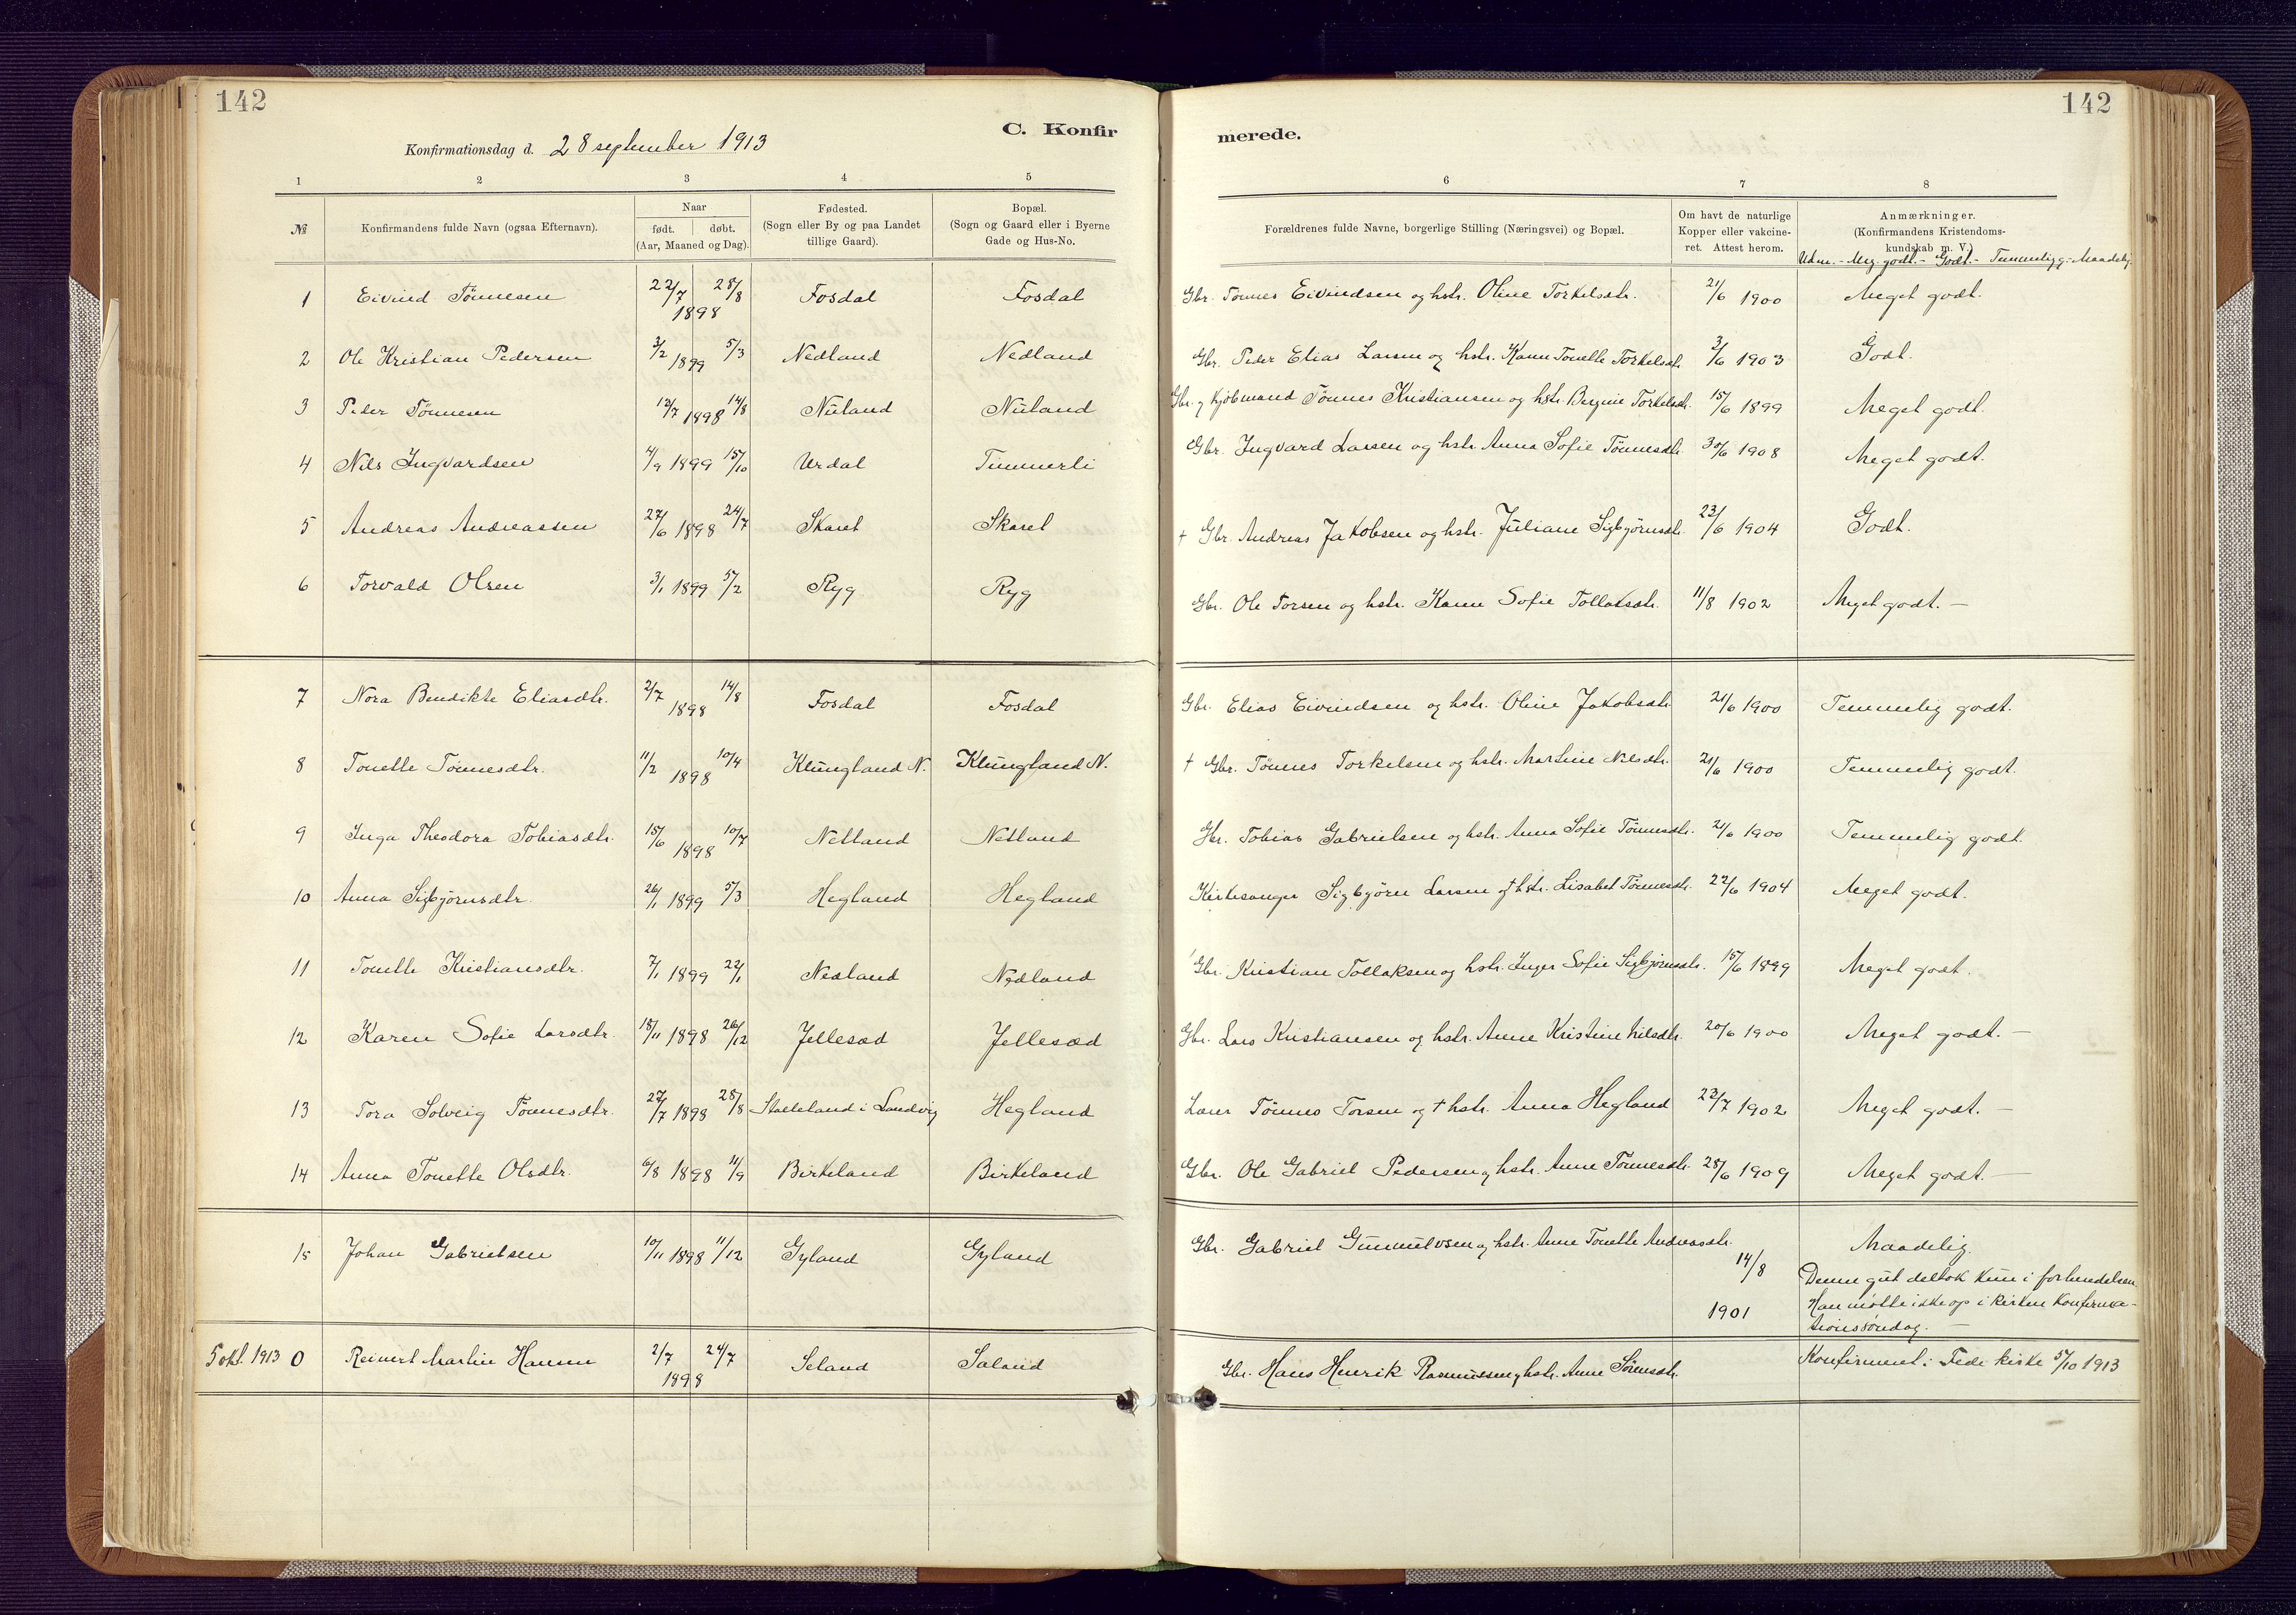 142
142
C. Konfir
merede.
Konfirmationsdag d. 28 september 1913
1 2 3 4 5
6 7 8
№
Konfirmandens fulde Navn (ogsaa Efternavn).
Naar
født. døbt.
(Aar, Maaned og Dag).
Fødested.
(Sogn eller By og paa Landet
tillige Gaard).
Bopæl.
(Sogn og Gaard eller i Byerne
Gade og Hus-No.
Forældrenes fulde Navne, borgerlige Stilling (Næringsvei) og Bopæl.
Om havt de naturlige
Kopper eller vakcine-
ret. Attest herom.
Anmærkninger.
(Konfirmandens Kristendoms-
kundskab m. V.)
Udm. - Meg. godt. - Godt. - Temmelig g. - Maadelig.
1 Eivind Tönnesen 22/7 1898 28/8 Fosdal Fosdal Gbr. Tönnes Eivindsen og hstr. Oline Torkelsdtr. 21/6 1900 Meget godt.
2 Ole Kristian Pedersen 3/2 1899 5/3 Nedland Nedland Gbr. Peder Elias Larsen og hstr. Karen Tonette Torkelsdtr. 3/6 1903 Godt.
3 Peder Tönnesen 12/7 1898 14/8 Nuland Nuland Gbr. og Kjöbmand Tönnes Kristiansen og hstr. Bergine Torkelsdtr. 15/6 1899 Meget godt.
4 Nils Ingvardsen 4/9 1899 15/10 Urdal Timmerli Gbr. Ingvard Larsen og hstr. Anna Sofie Tönnesdtr. 30/6 1908 Meget godt.
5 Andreas Andreassen 27/6 1898 24/7 Skaret Skaret † Gbr. Andreas Jakobsen og hstr. Juliane Sigbjörnsdtr. 23/6 1904 Godt.
6 Torvald Olsen 3/1 1899 5/2 Ryg Ryg Gbr. Ole Torsen og hstr. Karen Sofie Tollaksdtr. 11/8 1902 Meget godt. —
7 Nora Bendikte Eliasdtr. 2/7 1898 14/8 Fosdal Fosdal Gbr. Elias Eivindsen og hstr. Oline Jakobsdtr. 21/6 1900 Temmelig godt.
8 Tonette Tönnesdtr. 11/2 1898 10/4 Klungland N. Klungland N. † Gbr. Tönnes Torkelsen og hstr. Martine Nilsdtr. 21/6 1900 Temmelig godt.
9 Inga Theodora Tobiasdtr. 15/6 1898 10/7 Netland Netland Gbr. Tobias Gabrielsen og hstr. Anna Sofie Tönnesdtr. 21/6 1900 Temmelig godt.
10 Anna Sigbjörnsdtr. 26/1 1899 5/3 Hegland Hegland Kirkesanger Sigbjörn Larsen og † hstr. Lisabet Tönnesdtr. 22/6 1904 Meget godt.
11 Tonette Kristiansdtr. 7/1 1899 22/1 Nedland Nedland Gbr. Kristian Tollaksen og hstr. Inger Sofie Sigbjörnsdtr. 15/6 1899 Meget godt.
12 Karen Sofie Larsdtr. 18/11 1898 26/12 Jellesæd Jellesæd Gbr. Lars Kristiansen og hstr. Anne Kristine Nilsdtr. 20/6 1900 Meget godt. —
13 Tora Solveig Tönnesdtr. 27/7 1898 28/8 Stalleland i Landvig Hegland Lærer Tönnes Torsen og † hstr. Anna Hegland 23/7 1902 Meget godt. —
14 Anna Tonette Olsdtr. 6/8 1898 11/9 Birkeland Birkeland Gbr. Ole Gabriel Pedersen og hstr. Anne Tönnesdtr. 28/6 1909 Meget godt. —
15 Johan Gabrielsen 10/11 1898 11/12 Gyland Gyland Gbr. Gabriel Gunnulvsen og hstr. Anne Tonette Andreasdtr. 14/8 1901 Maadelig.
Denne gut deltok kun i forberedelsen
Han mötte ikke op i kirken Konfirma-
tionssöndag. —
5 okt. 1913 0 Reinert Martin Hansen 2/7 1898 24/7 Seland Seland Gbr. Hans Henrik Rasmussen og hstr. Anne Sörensdtr. Konfirmert i Fede kirke 5/10 1913